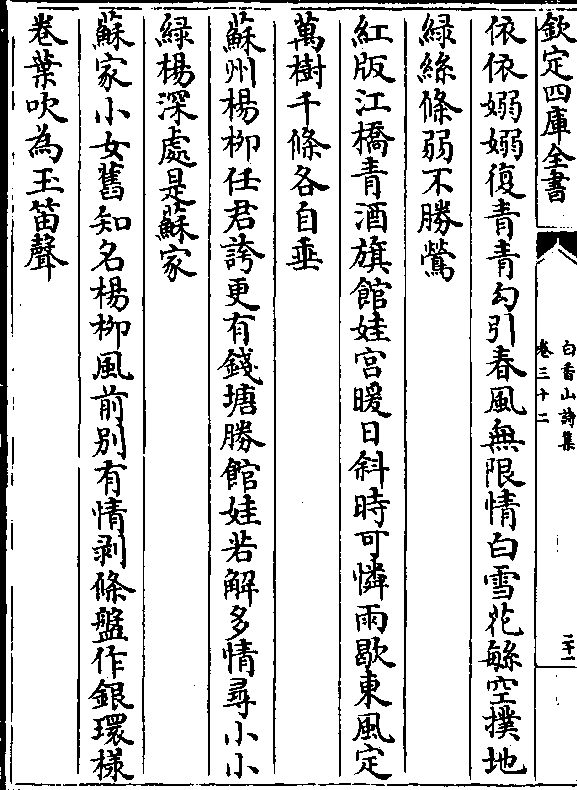 欽定四庫全書
白香山詩集
卷三十二
二十一
依依嫋嫋復青青勾引春風無限情白雪花繁空撲地
緑絲條弱不勝鶯
紅版江橋青酒旗館娃宮暖日斜時可憐雨歇東風定
萬樹千條各自垂
蘇州楊柳任君誇更有錢塘勝館娃若解多情尋小小
緑楊深處是蘇家
蘇家小女舊知名楊柳風前别有情剥條盤作銀環樣
卷葉吹為玉笛聲